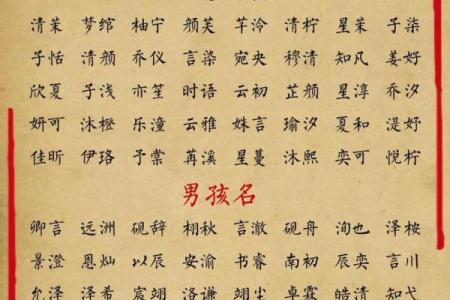 清茉 梦绾 柚宁 颜芙 芊泠 清柠 星茉 子柒
子恬 清颜 乔仪 言染 宛央 穆清 知凡 姜好
欣夏 子浅 亦笙 时语 云初 芷颜 星淳 乔汐
妍可 沐橙 乐潼 云雅 姝言 瑜汐 夏和 湜妤
佳昕 伊珞 予棠 苒溪 星蔓 沐熙 奕可 悦柠
男孩名
卿言 远洲 砚辞 栩秋 言澈 砚舟 洵也 泽桉
景澄 恩灿 以辰 安渝 书睿 南初 辰奕 言川
允泽 泽希 宸翊 洛谦 翊尘 卓霖 皓南 知弋